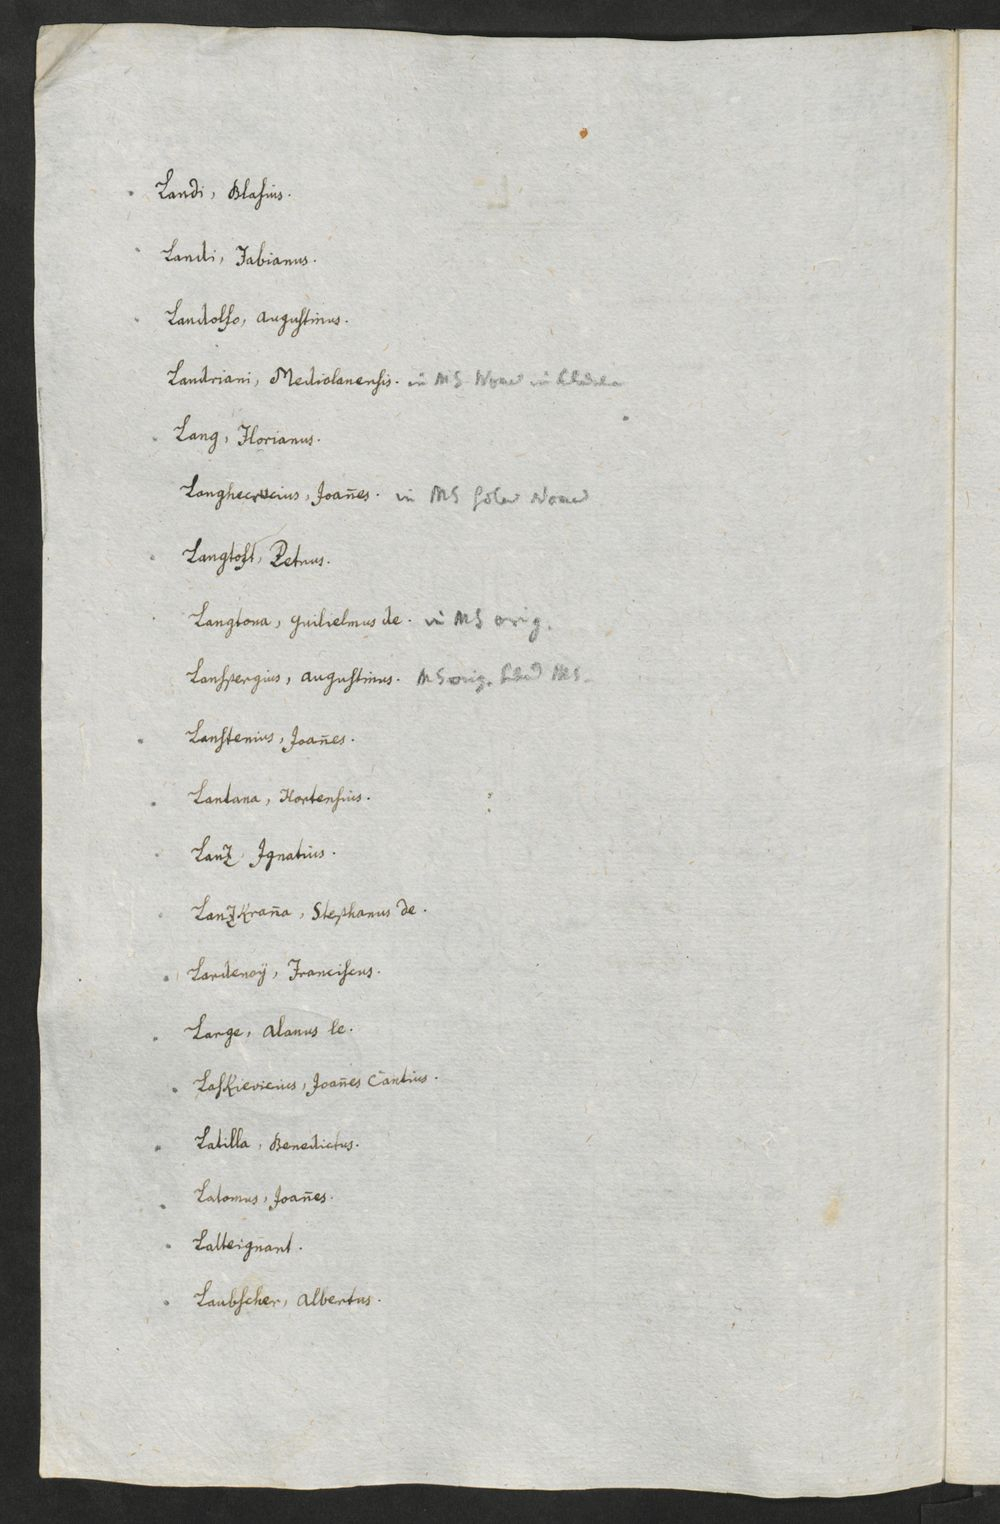 Landi, Blasius.
Landi, Fabianus.
Landolfo, Augustinus.
Landriani, Mediolanensis. in MS in
Lang, Florianus.
Langhecrucius, Joan̄es. in MS
Langtoft, Petrus.
Langtona, Guilielmus de. in MS orig.
Lanspergius, Augustinus. MS orig. MS.
Lanstenius, Joan̄es.
Lantana, Hortensius.
Lanz Ignatius.
Lanzkran̄a, Stephanus de.
Lardenoÿ, Franciscus.
Large, Alanus le.
Laskievicius, Joan̄es Cantius.
Latilla, Benedictus.
Latomus, Joan̄es.
Latteignant.
Laubscher, Albertus.